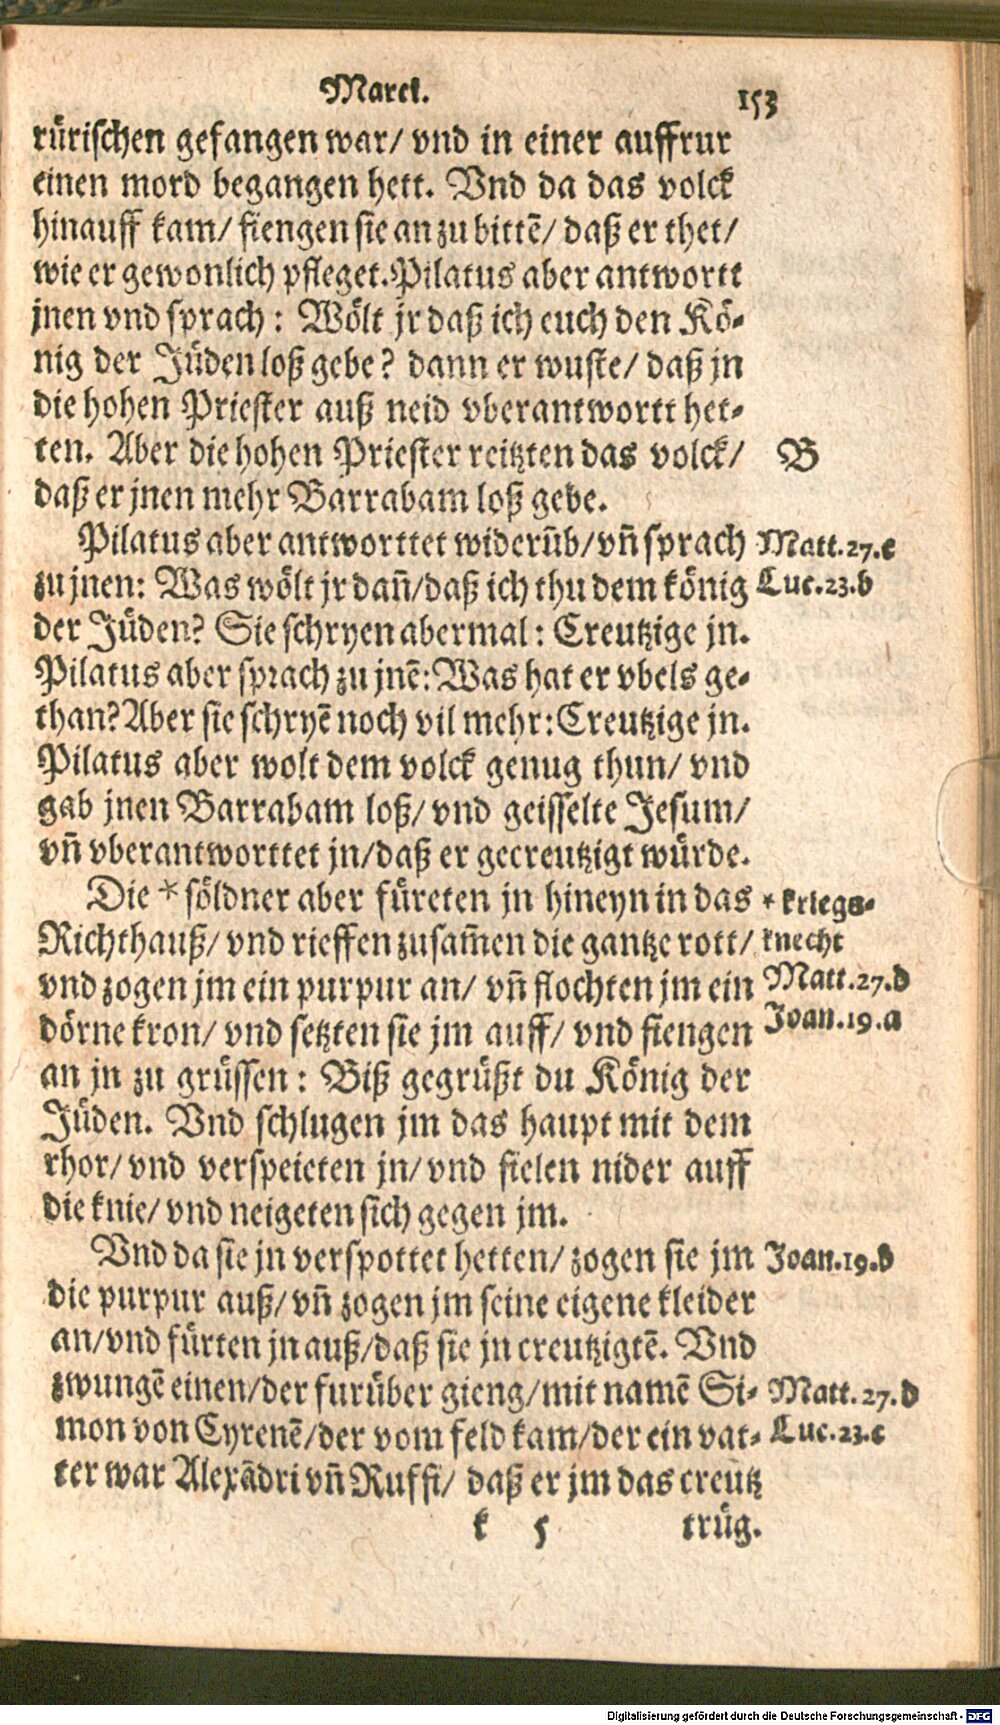 Marck. 153
rürischen gefangen war/ vnd in einer auffrur
einen mord begangen hett. Vnd da das volck
hinauff kam/ fiengen sie an zu bittē/ daß er thet/
wie er gewonlich pfleget. Pilatus aber antwortt
jnen vnd sprach: Wölt jr daß ich euch den Kö-
nig der Jüden loß gebe? dann er wuste/ daß jn
die hohen Priester auß neid vberantwortt het-
ten. Aber die hohen Priester reitzten das volck/ B
daß er jnen mehr Barrabam loß gebe.
Pilatus aber antworttet widerüb/ vn̄ sprach Matt.27.c
zu jnen: Was wölt jr dan̄/ daß ich thu dem könig Luc.23.b
der Jüden? Sie schryen abermal: Creutzige jn.
Pilatus aber sprach zu jnē: Was hat er vbels ge-
than? Aber sie schryē noch vil mehr: Creutzige jn.
Pilatus aber wolt dem volck genug thun/ vnd
gab jnen Barrabam loß/ vnd geisselte Jesum/
vn̄ vberantworttet jn/ daß er gecreutzigt würde.
Die * söldner aber füreten jn hineyn in das * kriegs-
Richthauß/ vnd rieffen zusam̄en die gantze rott/ knecht
vnd zogen jm ein purpur an/ vn̄ flochten jm ein Matt.27.d
dörne kron/ vnd setzten sie jm auff/ vnd fiengen Joan.19.a
an jn zu grüssen: Biß gegrüßt du König der
Jüden. Vnd schlugen jm das haupt mit dem
rhor/ vnd verspeieten jn/ vnd fielen nider auff
die knie/ vnd neigeten sich gegen jm.
Vnd da sie jn verspottet hetten/ zogen sie jm Joan.19.b
die purpur auß/ vn̄ zogen jm seine eigene kleider
an/ vnd fürten jn auß/ daß sie jn creutzigtē. Vnd
zwungē einen/ der furüber gieng/ mit namē Si- Matt.27.d
mon von Cyrenē/ der vom feld kam/ der ein vat- Luc.23.c
ter war Alexādri vn̄ Ruffi/ daß er jm das creütz
k 5 trüg.
Digitalisierung gefördert durch die Deutsche Forschungsgemeinschaft - DFG